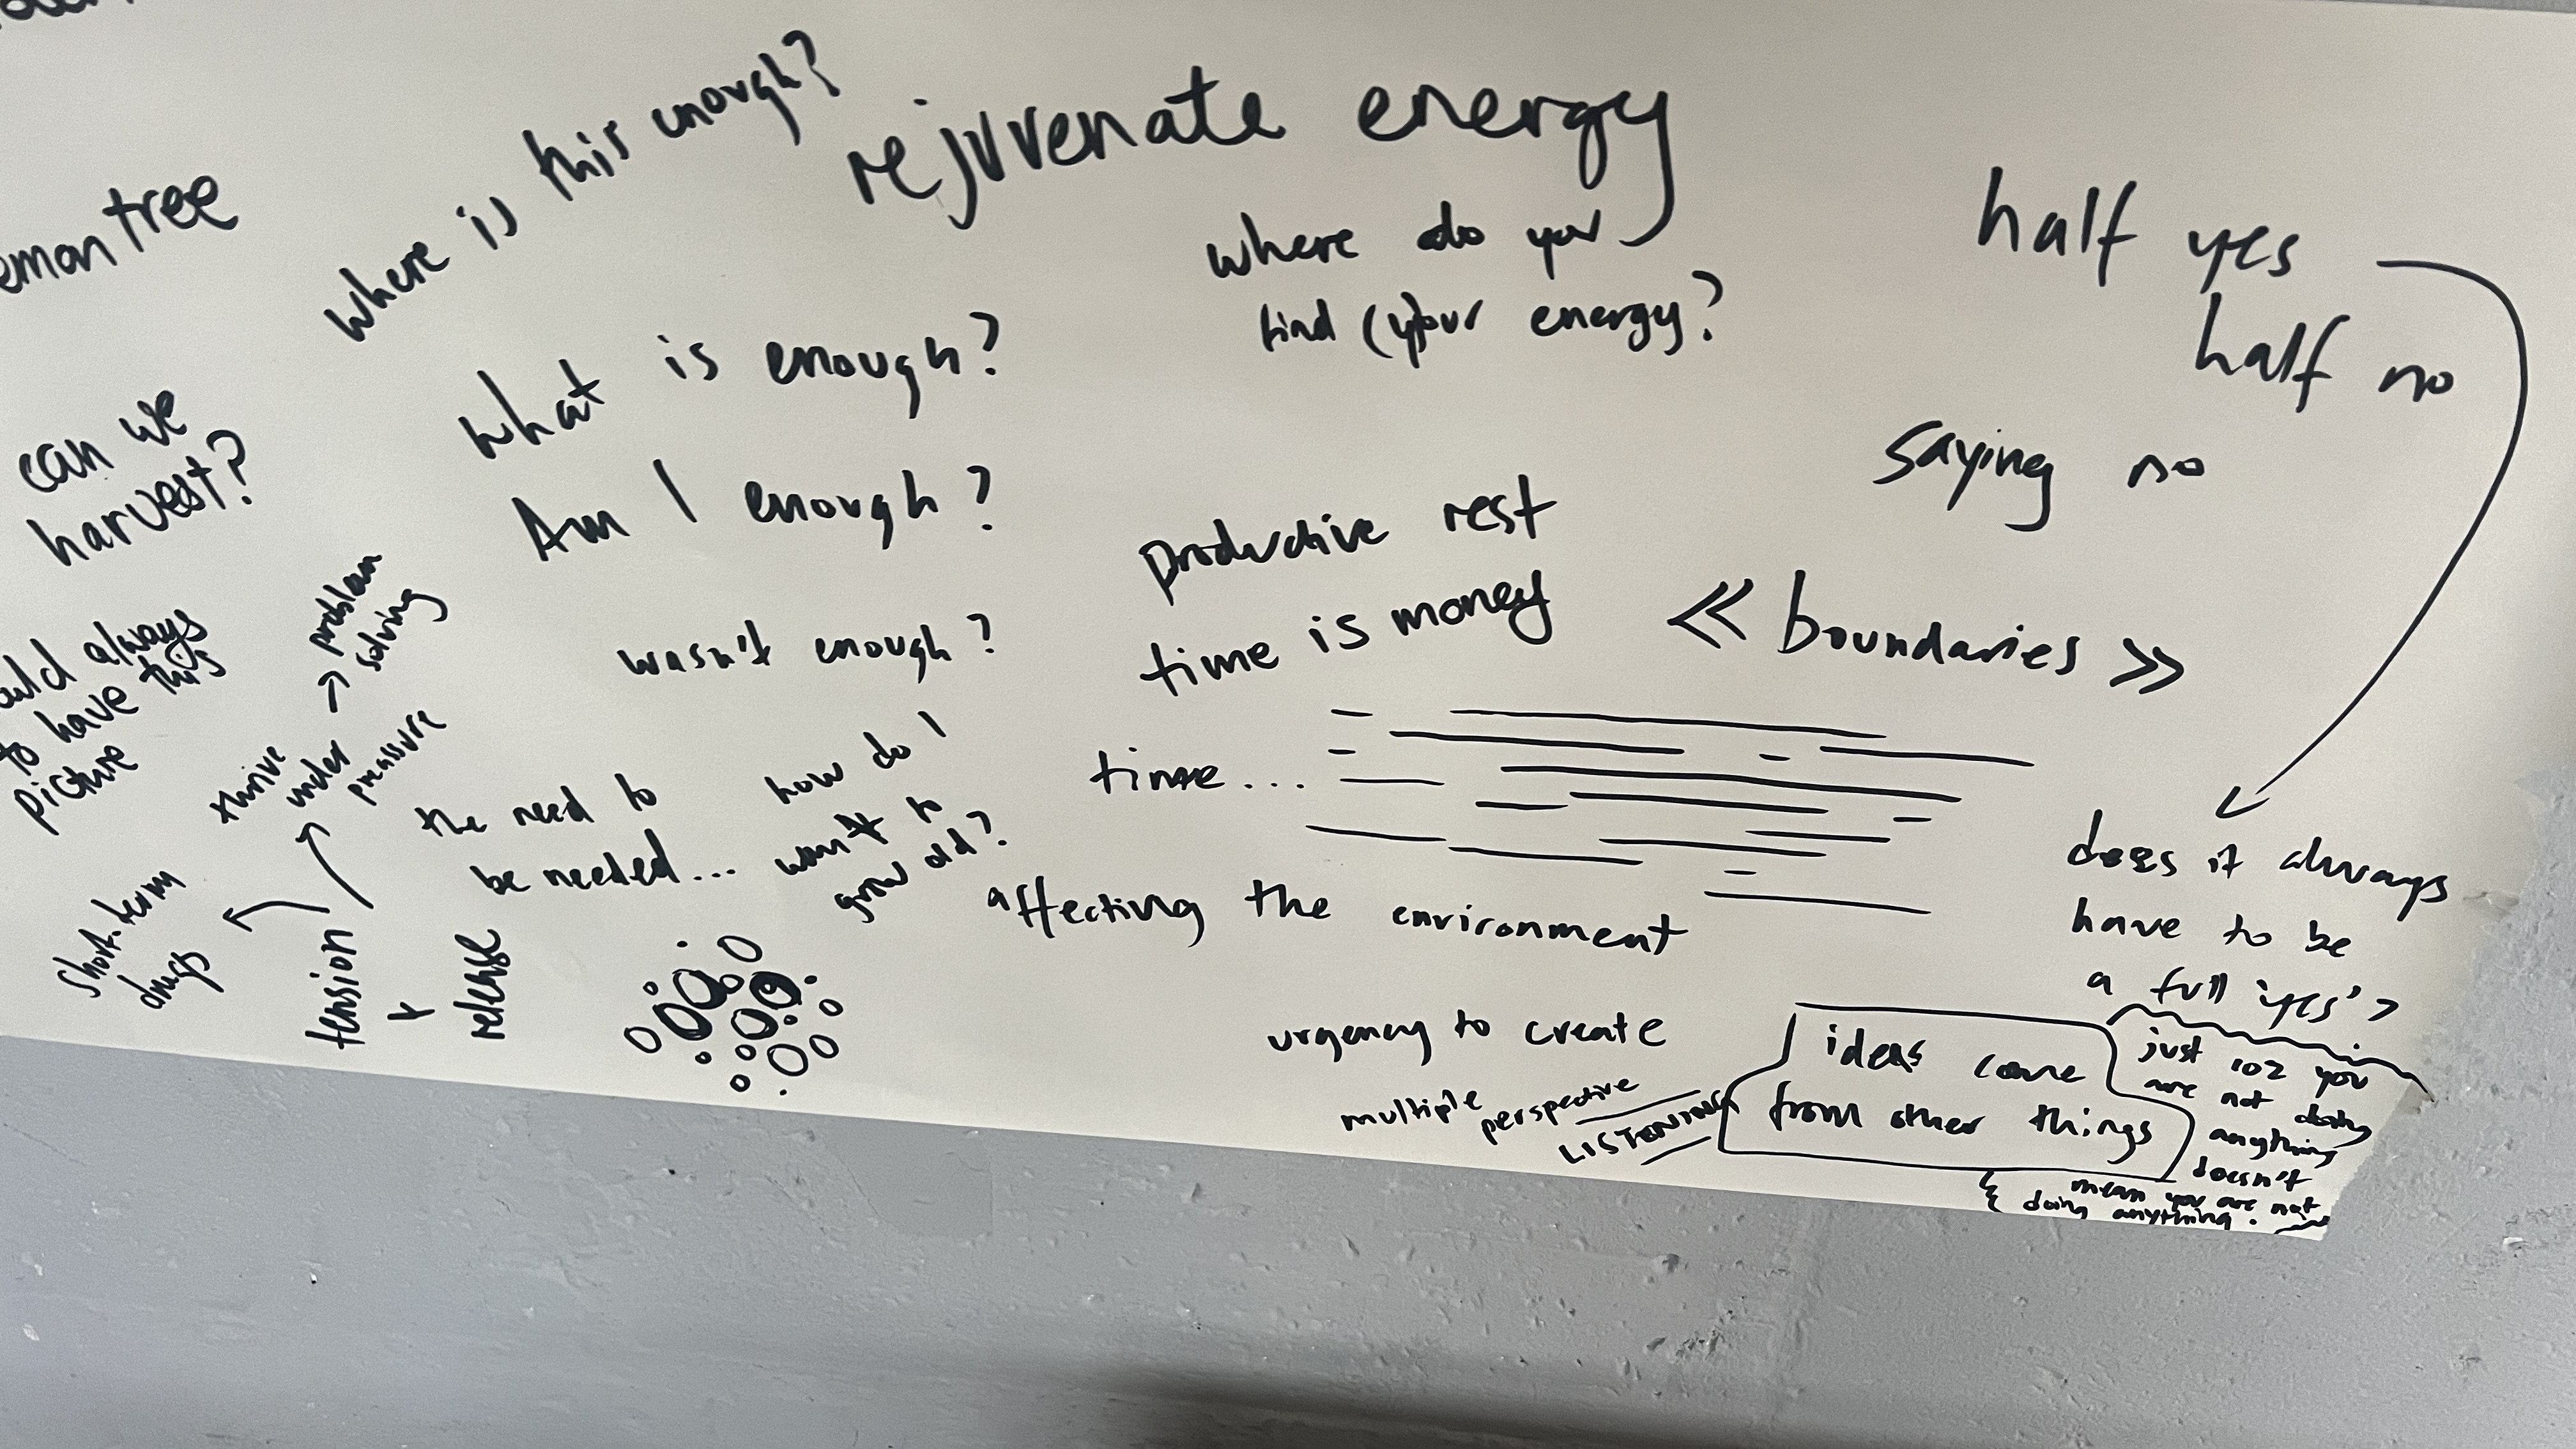 tree
can we
harvest?
always
to have this
picture
where is this enough?
what is enough?
Am I enough?
wasn't enough?
problem
solving
thrive
under
pressure
short-term
drugs
tension
+
release
the need to
be needed...
how do I
want to
grow old?
rejuvenate energy
where do you
find (y)our energy?
productive rest
time is money
time...
affecting the environment
urgency to create
multiple perspective
LISTENING
half yes
half no
saying no
<< boundaries >>
does it always
have to be
a full 'yes'?
ideas come
from other things
just coz you
are not doing
anything
doesn't
mean you are not
doing anything.